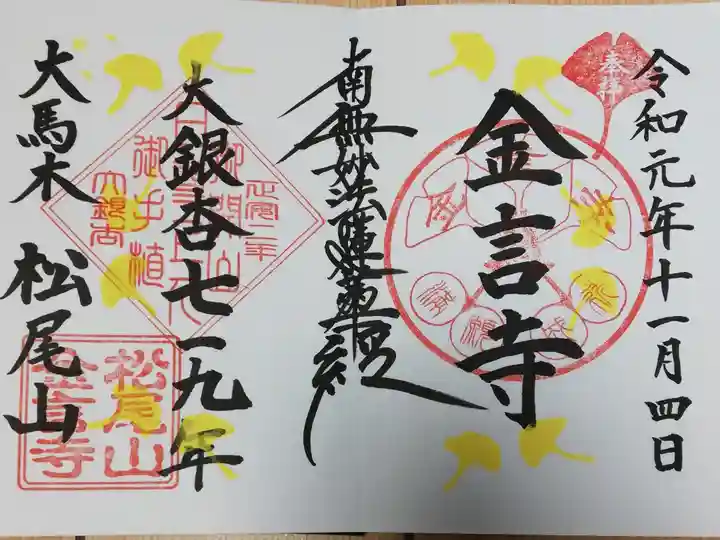 令和元年十一月四日
奉拝
金言寺
南無妙法蓮華経
大銀杏七一九年
御手植
大銀杏
大馬木 松尾山
松尾山
金言寺